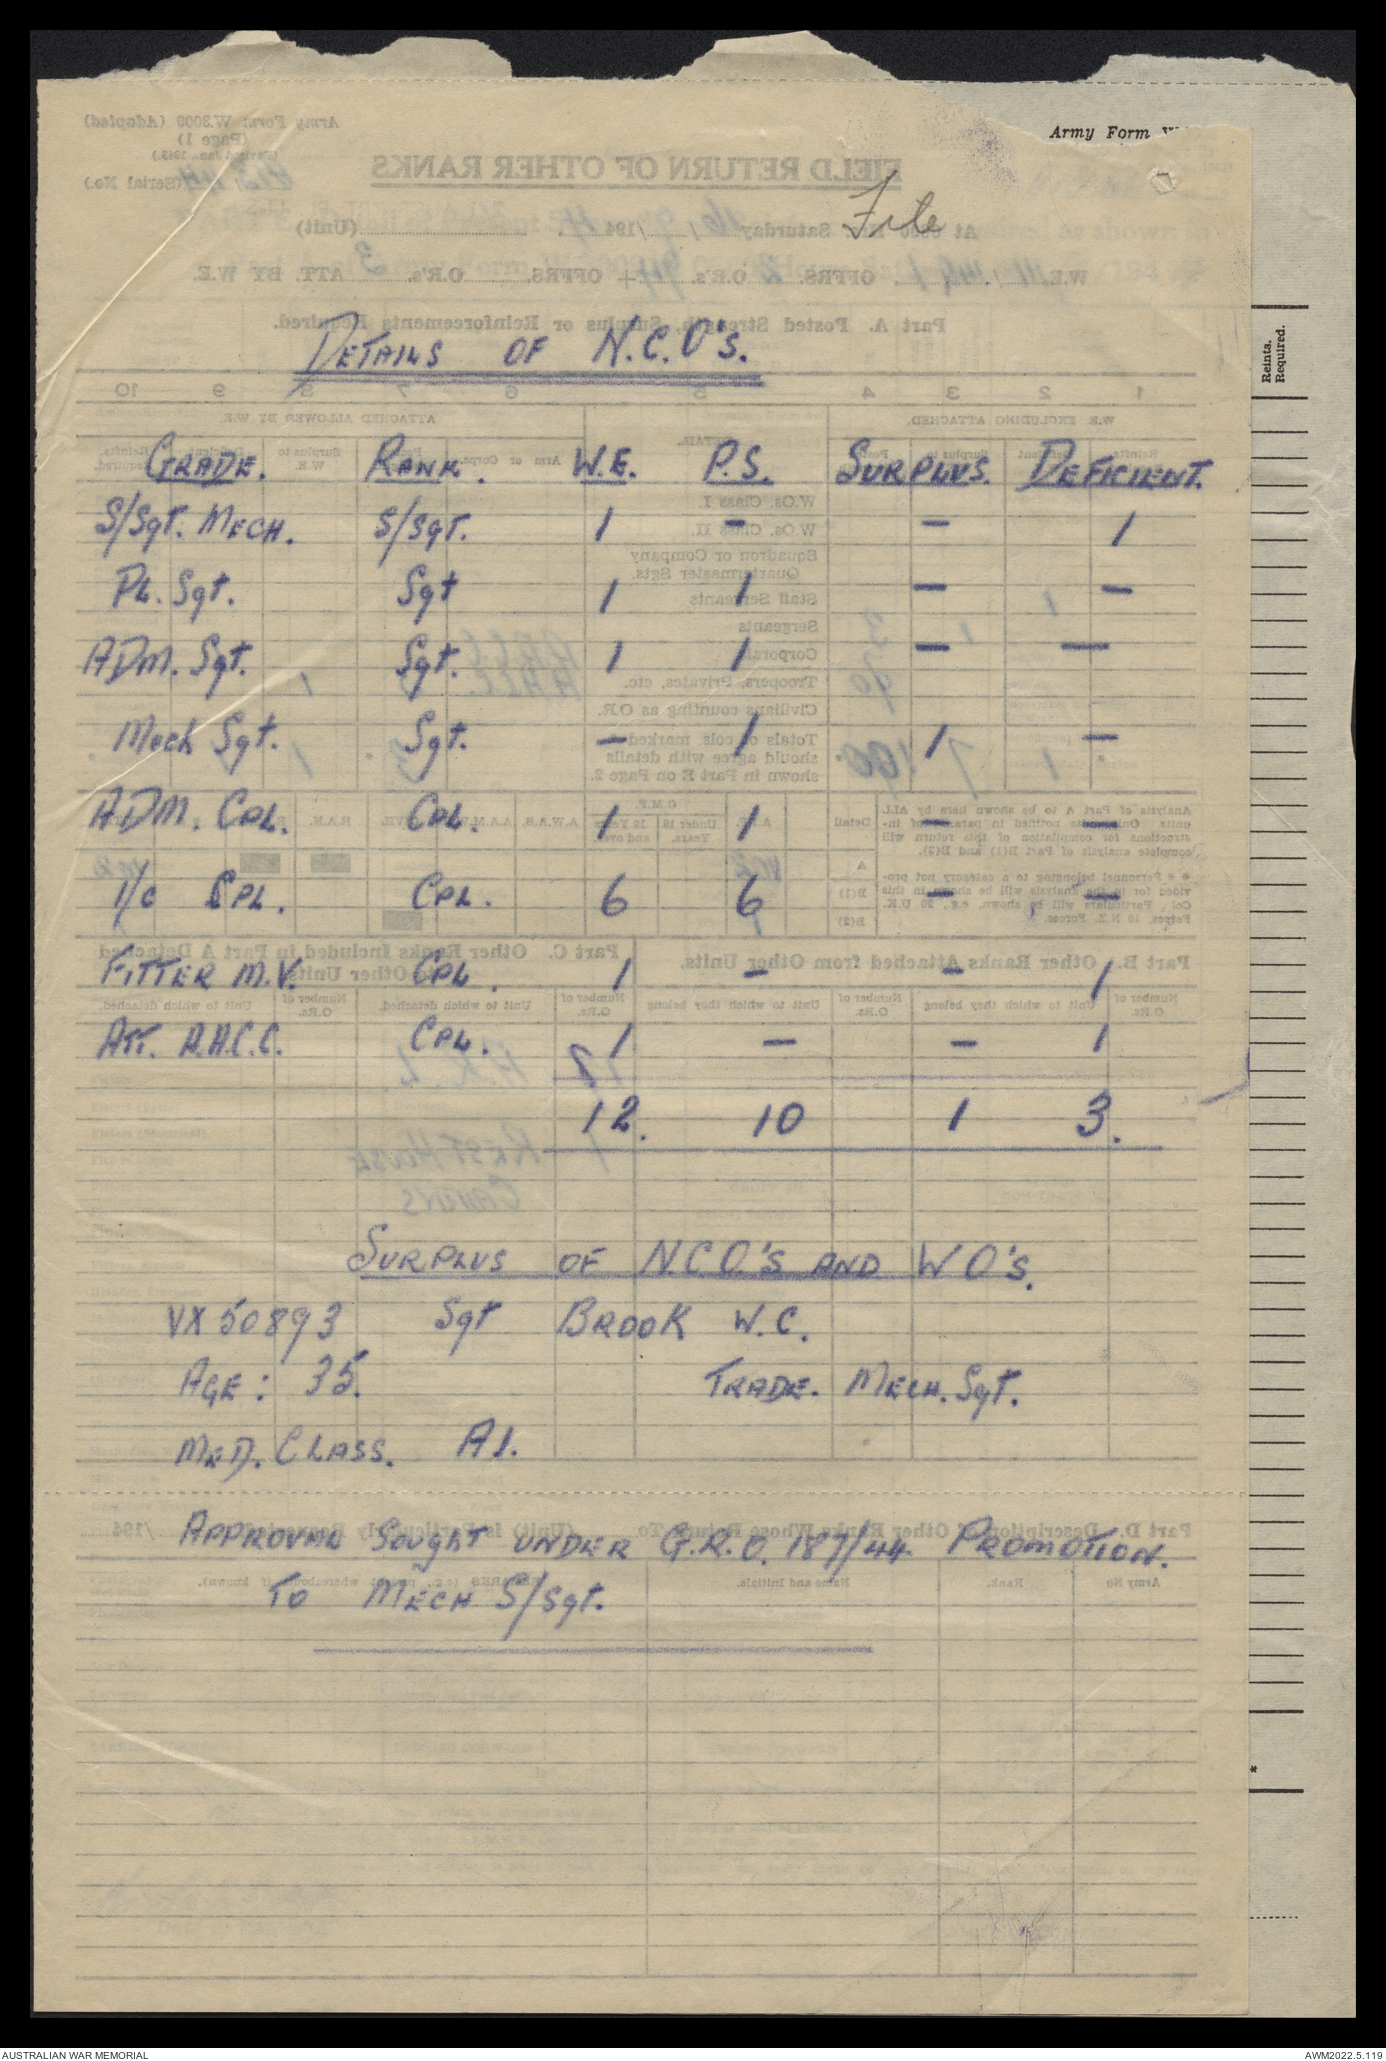 Army Form
File
DETAILS OF N.C.O'S.
Reints. Required.
GRADE. RANK. W.E. P.S. SURPLUS. DEFICIENT.
S/Sgt. MECH. S/SgT. 1 - - 1
PL. Sgt. Sgt 1 1 - -
ADM. Sgt. Sgt. 1 1 - -
Mech Sgt. Sgt. - 1 1 -
ADM. CPL. CPL. 1 1 - -
I/C CPL. CPL. 6 6 - -
FITTER M.V. CPL. 1 - - 1
ATT. A.A.C.C. CPL. 1 - - 1
12. 10 1 3.
SURPLUS OF N.C.O.'S AND W O'S.
VX50893 Sgt BROOK W.C.
AGE: 35. TRADE. MECH. Sgt.
MED. CLASS. A1.
APPROVAL SOUGHT UNDER G.R.O. 187/44. PROMOTION.
TO MECH S/Sgt.
*
AUSTRALIAN WAR MEMORIAL AWM2022.5.119